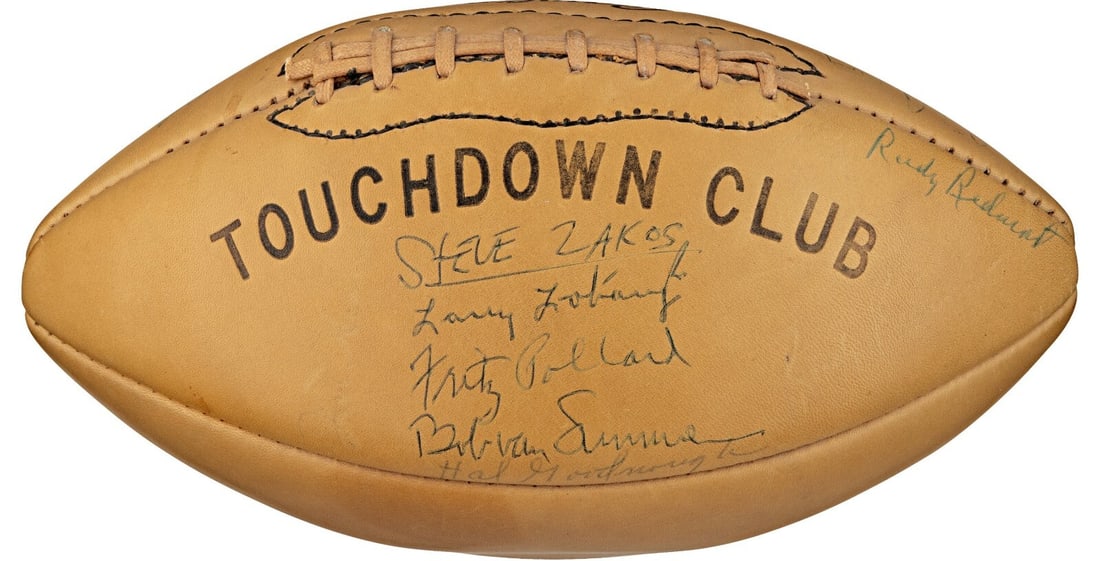 TOUCHDOWN CLUB
Rudy
STEVE ZAKOS
Larry
Fritz Pollard
Bob van
Hal Goodnough